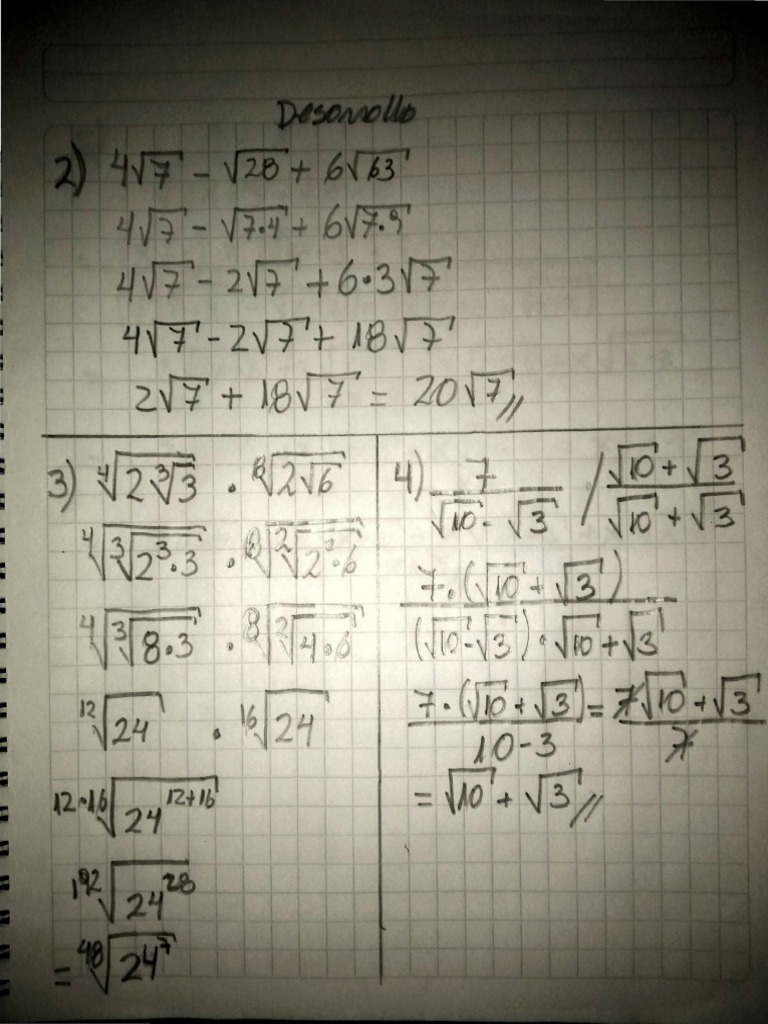 Desarrollo
2) 4√7 - √28 + 6√63
4√7 - √7·4 + 6√7·9
4√7 - 2√7 + 6·3√7
4√7 - 2√7 + 18√7
2√7 + 18√7 = 20√7//
3) ⁴√(2 ³√3) · ⁸√(2√6)
⁴√(³√(2³·3)) · ⁸√(²√(2²·6))
⁴√(³√(8·3)) · ⁸√(²√(4·6))
¹²√24 · ¹⁶√24
¹²·¹⁶√(24¹²⁺¹⁶)
¹⁹²√(24²⁸)
= ⁴⁸√(24⁷)
4) 7/(√10 - √3) / (√10 + √3)/(√10 + √3)
7·(√10 + √3)/((√10 - √3)·√10 + √3)
7·(√10 + √3)/(10 - 3) = (7√10 + √3)/7
= √10 + √3//